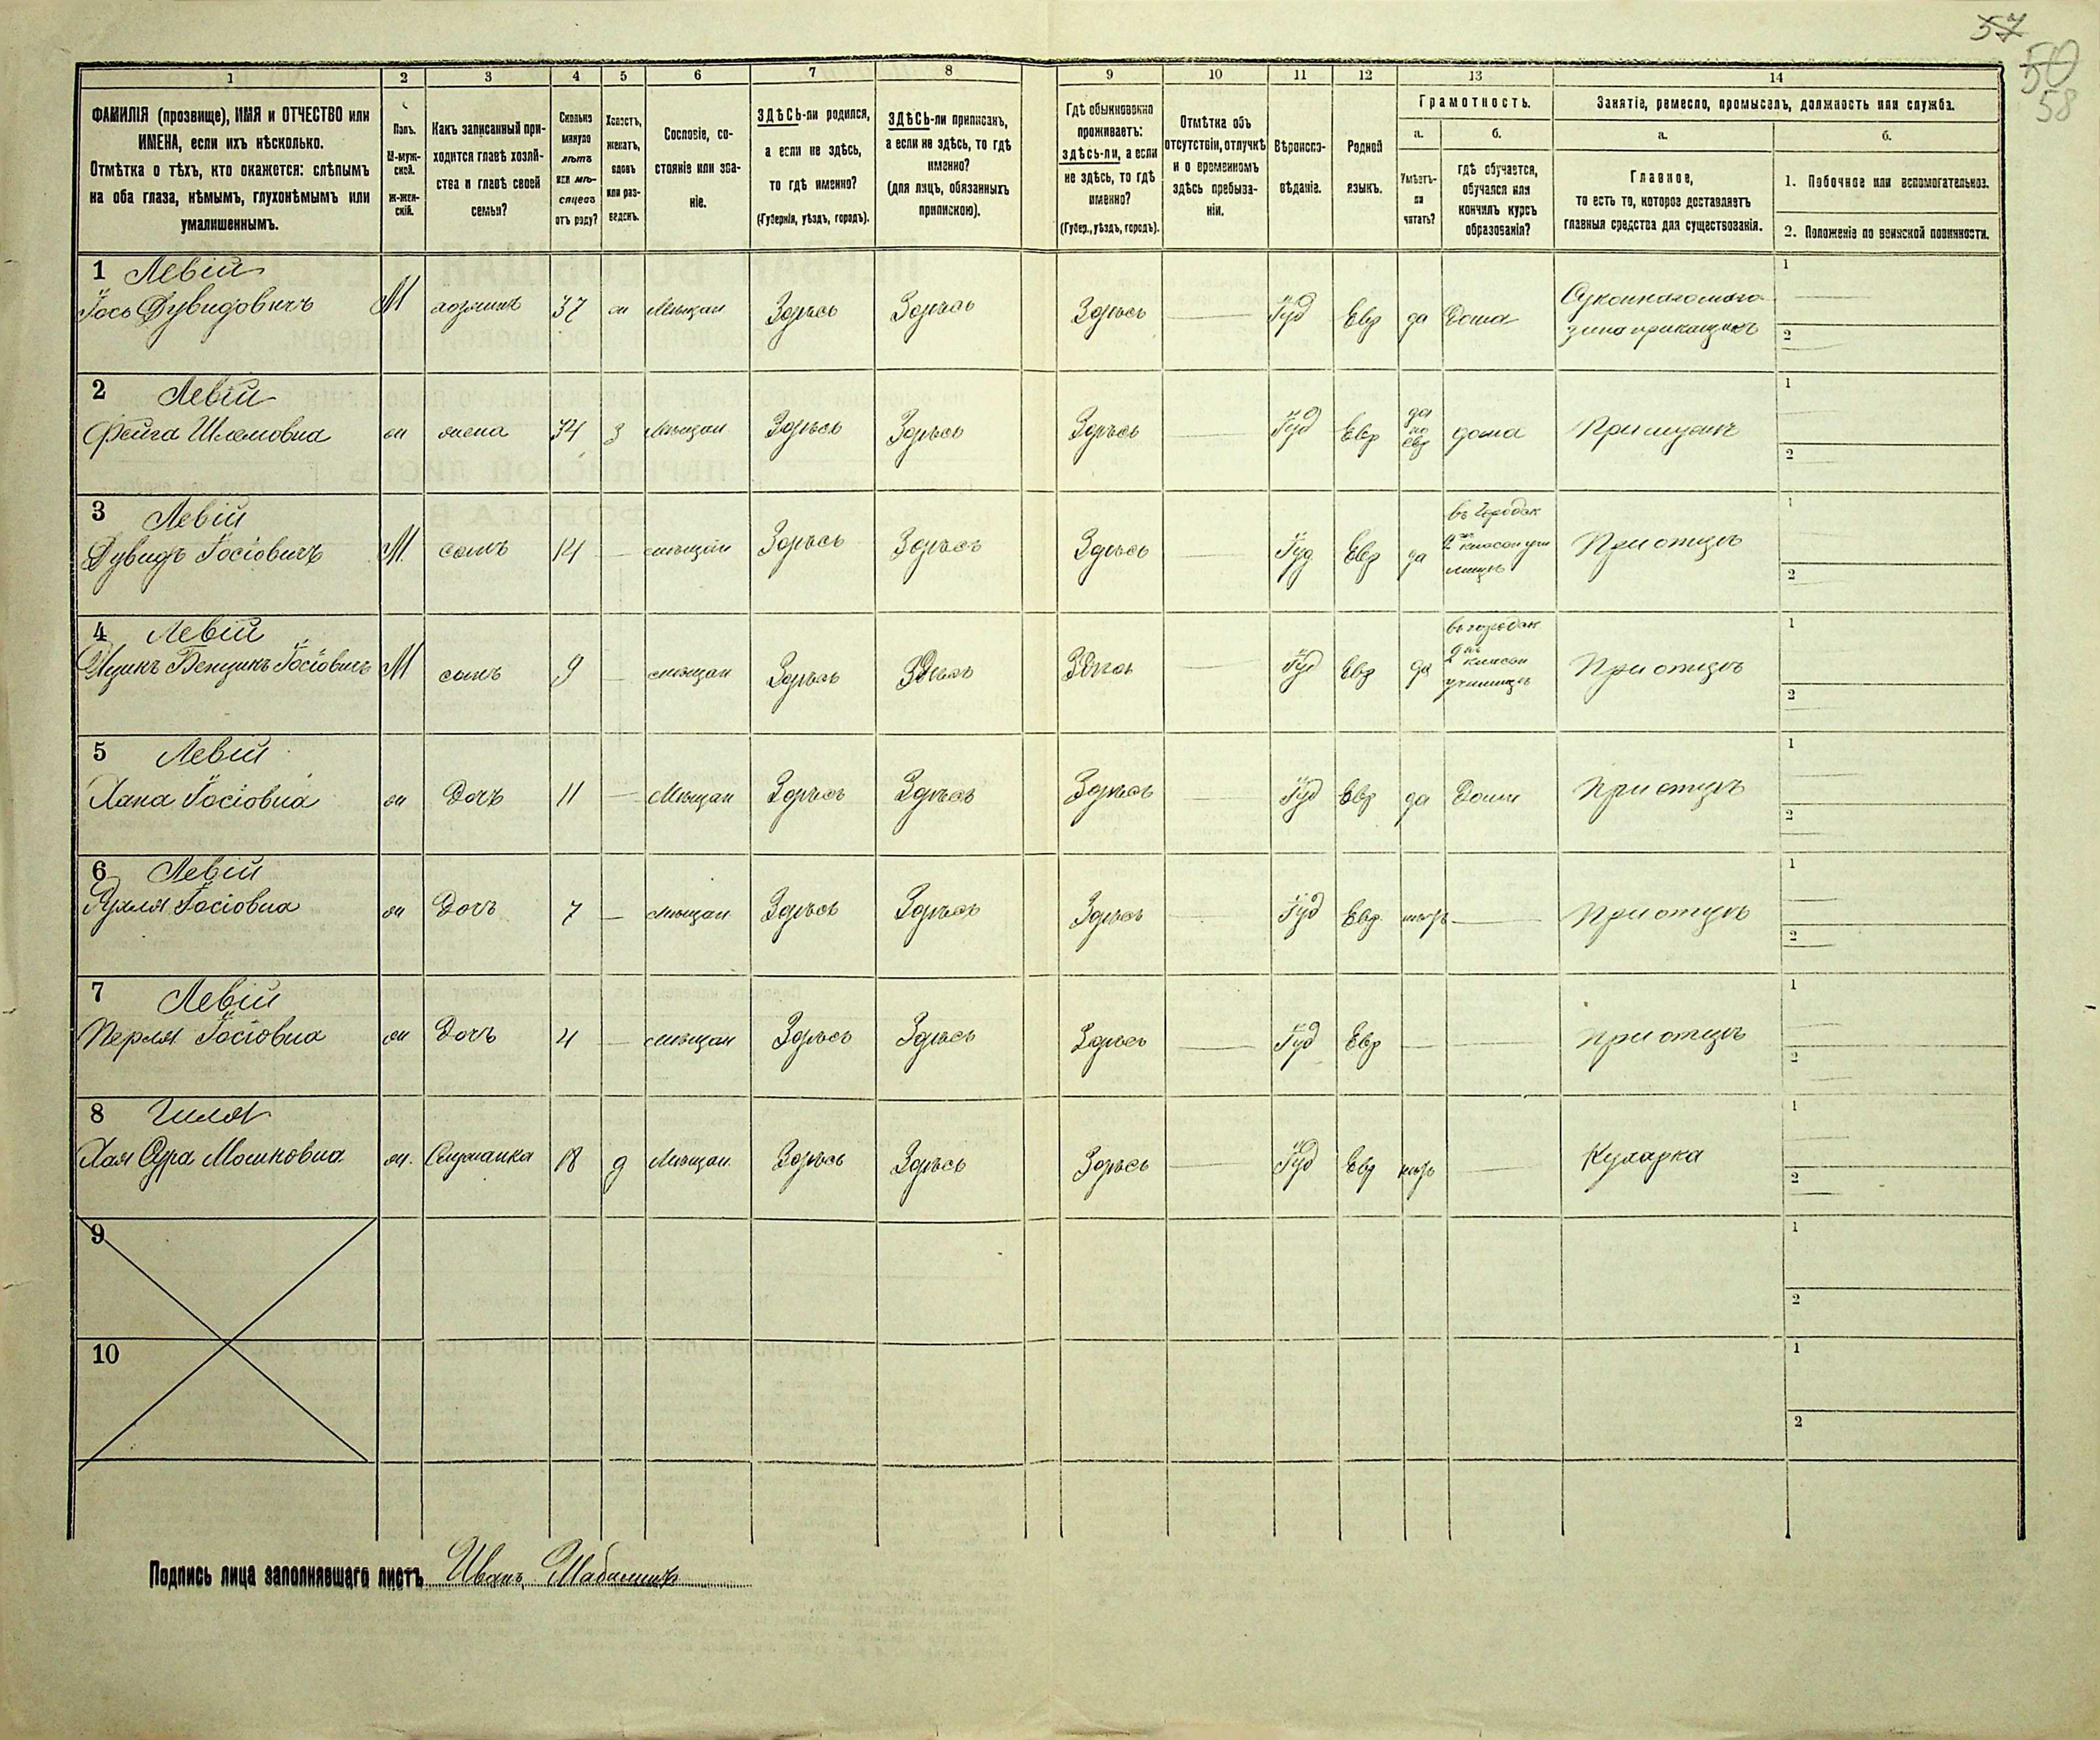 57
50
58
1 2 3 4 5 6 7 8 9 10 11 12 13 14
ФАМИЛІЯ (прозвище), ИМЯ и ОТЧЕСТВО или
ИМЕНА, если ихъ нѣсколько.
Отмѣтка о тѣхъ, кто окажется: слѣпымъ
на оба глаза, нѣмымъ, глухонѣмымъ или
умалишеннымъ.
Полъ.
М-муж-
ской.
Ж-жен-
скій.
Какъ записанный при-
ходится главѣ хозяй-
ства и главѣ своей
семьи?
Сколько
минуло
лѣтъ
или мѣ-
сяцевъ
отъ роду?
Холостъ,
женатъ,
вдовъ
или раз-
веденъ.
Сословіе, со-
стояніе или зва-
ніе.
ЗДѢСЬ-ли родился,
а если не здѣсь,
то гдѣ именно?
(Губернія, уѣздъ, городъ).
ЗДѢСЬ-ли приписанъ,
а если не здѣсь, то гдѣ
именно?
(для лицъ, обязанныхъ
припискою).
Гдѣ обыкновенно
проживаетъ:
здѣсь-ли, а если
не здѣсь, то гдѣ
именно?
(Губер., уѣздъ, городъ).
Отмѣтка объ
отсутствіи, отлучкѣ
и о временномъ
здѣсь пребыва-
ніи.
Вѣроиспо-
вѣданіе.
Родной
языкъ.
Грамотность.
а.
Умѣетъ-
ли
читать?
б.
гдѣ обучается,
обучался или
кончилъ курсъ
образованія?
Занятіе, ремесло, промыселъ, должность или служба.
а.
Главное,
то есть то, которое доставляетъ
главныя средства для существованія.
б.
1. Побочное или вспомогательное.
2. Положеніе по воинской повинности.
1 Левій
Іось Дувидовичъ М хозяинъ 37 ж Мѣщан Здѣсь Здѣсь Здѣсь Іуд Евр да Дома
Сукон­наго мага
зина прикащикъ
1
2
2 Левій
Фейга Шлемовна ж жена 34 з Мѣщан Здѣсь Здѣсь Здѣсь Іуд Евр
да
по
евр
дома При мужѣ
1
2
3 Левій
Дувидъ Іосіовичъ М сынъ 14 мѣщан Здѣсь Здѣсь Здѣсь Іуд Евр да
въ Городск
2 класн учи
лищѣ
При отцѣ
1
2
4 Левій
Ицикъ Бенционъ Іосіовичъ М сынъ 9 мѣщан Здѣсь Здѣсь Здѣсь Іуд Евр да
въ городск
2 класн
училищѣ
При отцѣ
1
2
5 Левій
Хана Іосіовна ж Дочь 11 Мѣщан Здѣсь Здѣсь Здѣсь Іуд Евр да Дома При отцѣ
1
2
6 Левій
Рухля Іосіовна ж Дочь 7 мѣщан Здѣсь Здѣсь Здѣсь Іуд Евр нѣтъ При отцѣ
1
2
7 Левій
Перля Іосіовна ж Дочь 4 мѣщан Здѣсь Здѣсь Здѣсь Іуд Евр При отцѣ
1
2
8
Хая Сура Мошковна ж. Служанка 18 д Мѣщан Здѣсь Здѣсь Здѣсь Іуд Евр нѣтъ Кухарка
1
2
9
1
2
10
1
2
Подпись лица заполнявшаго листъ Иванъ